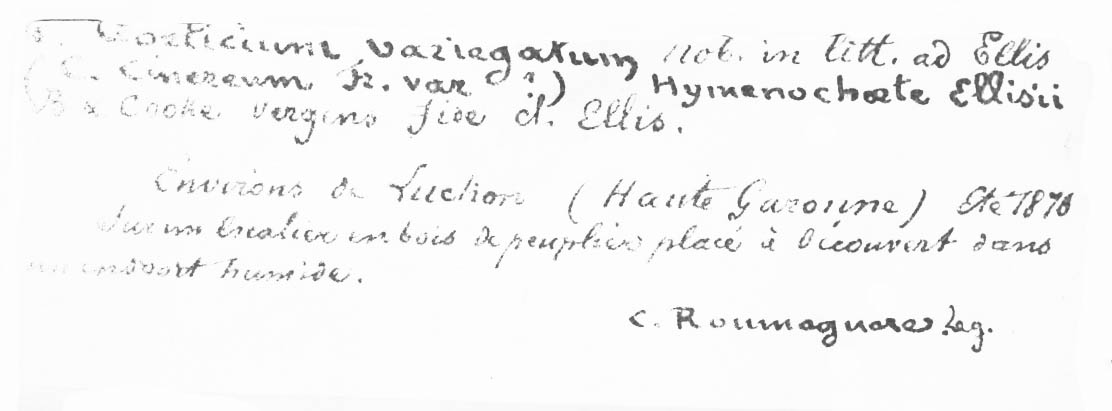 Corticium variegatum nob. in litt. ad Ellis
(C. Cinereum Fr. var ?) Hymenochœte Ellisii
B & Cooke vergens fide cl. Ellis.
Environs de Luchon (Haute Garonne) Eté 1878
Sur un Escalier en bois de peuplier placé à découvert dans
un endroit humide.
C. Roumeguere Leg.